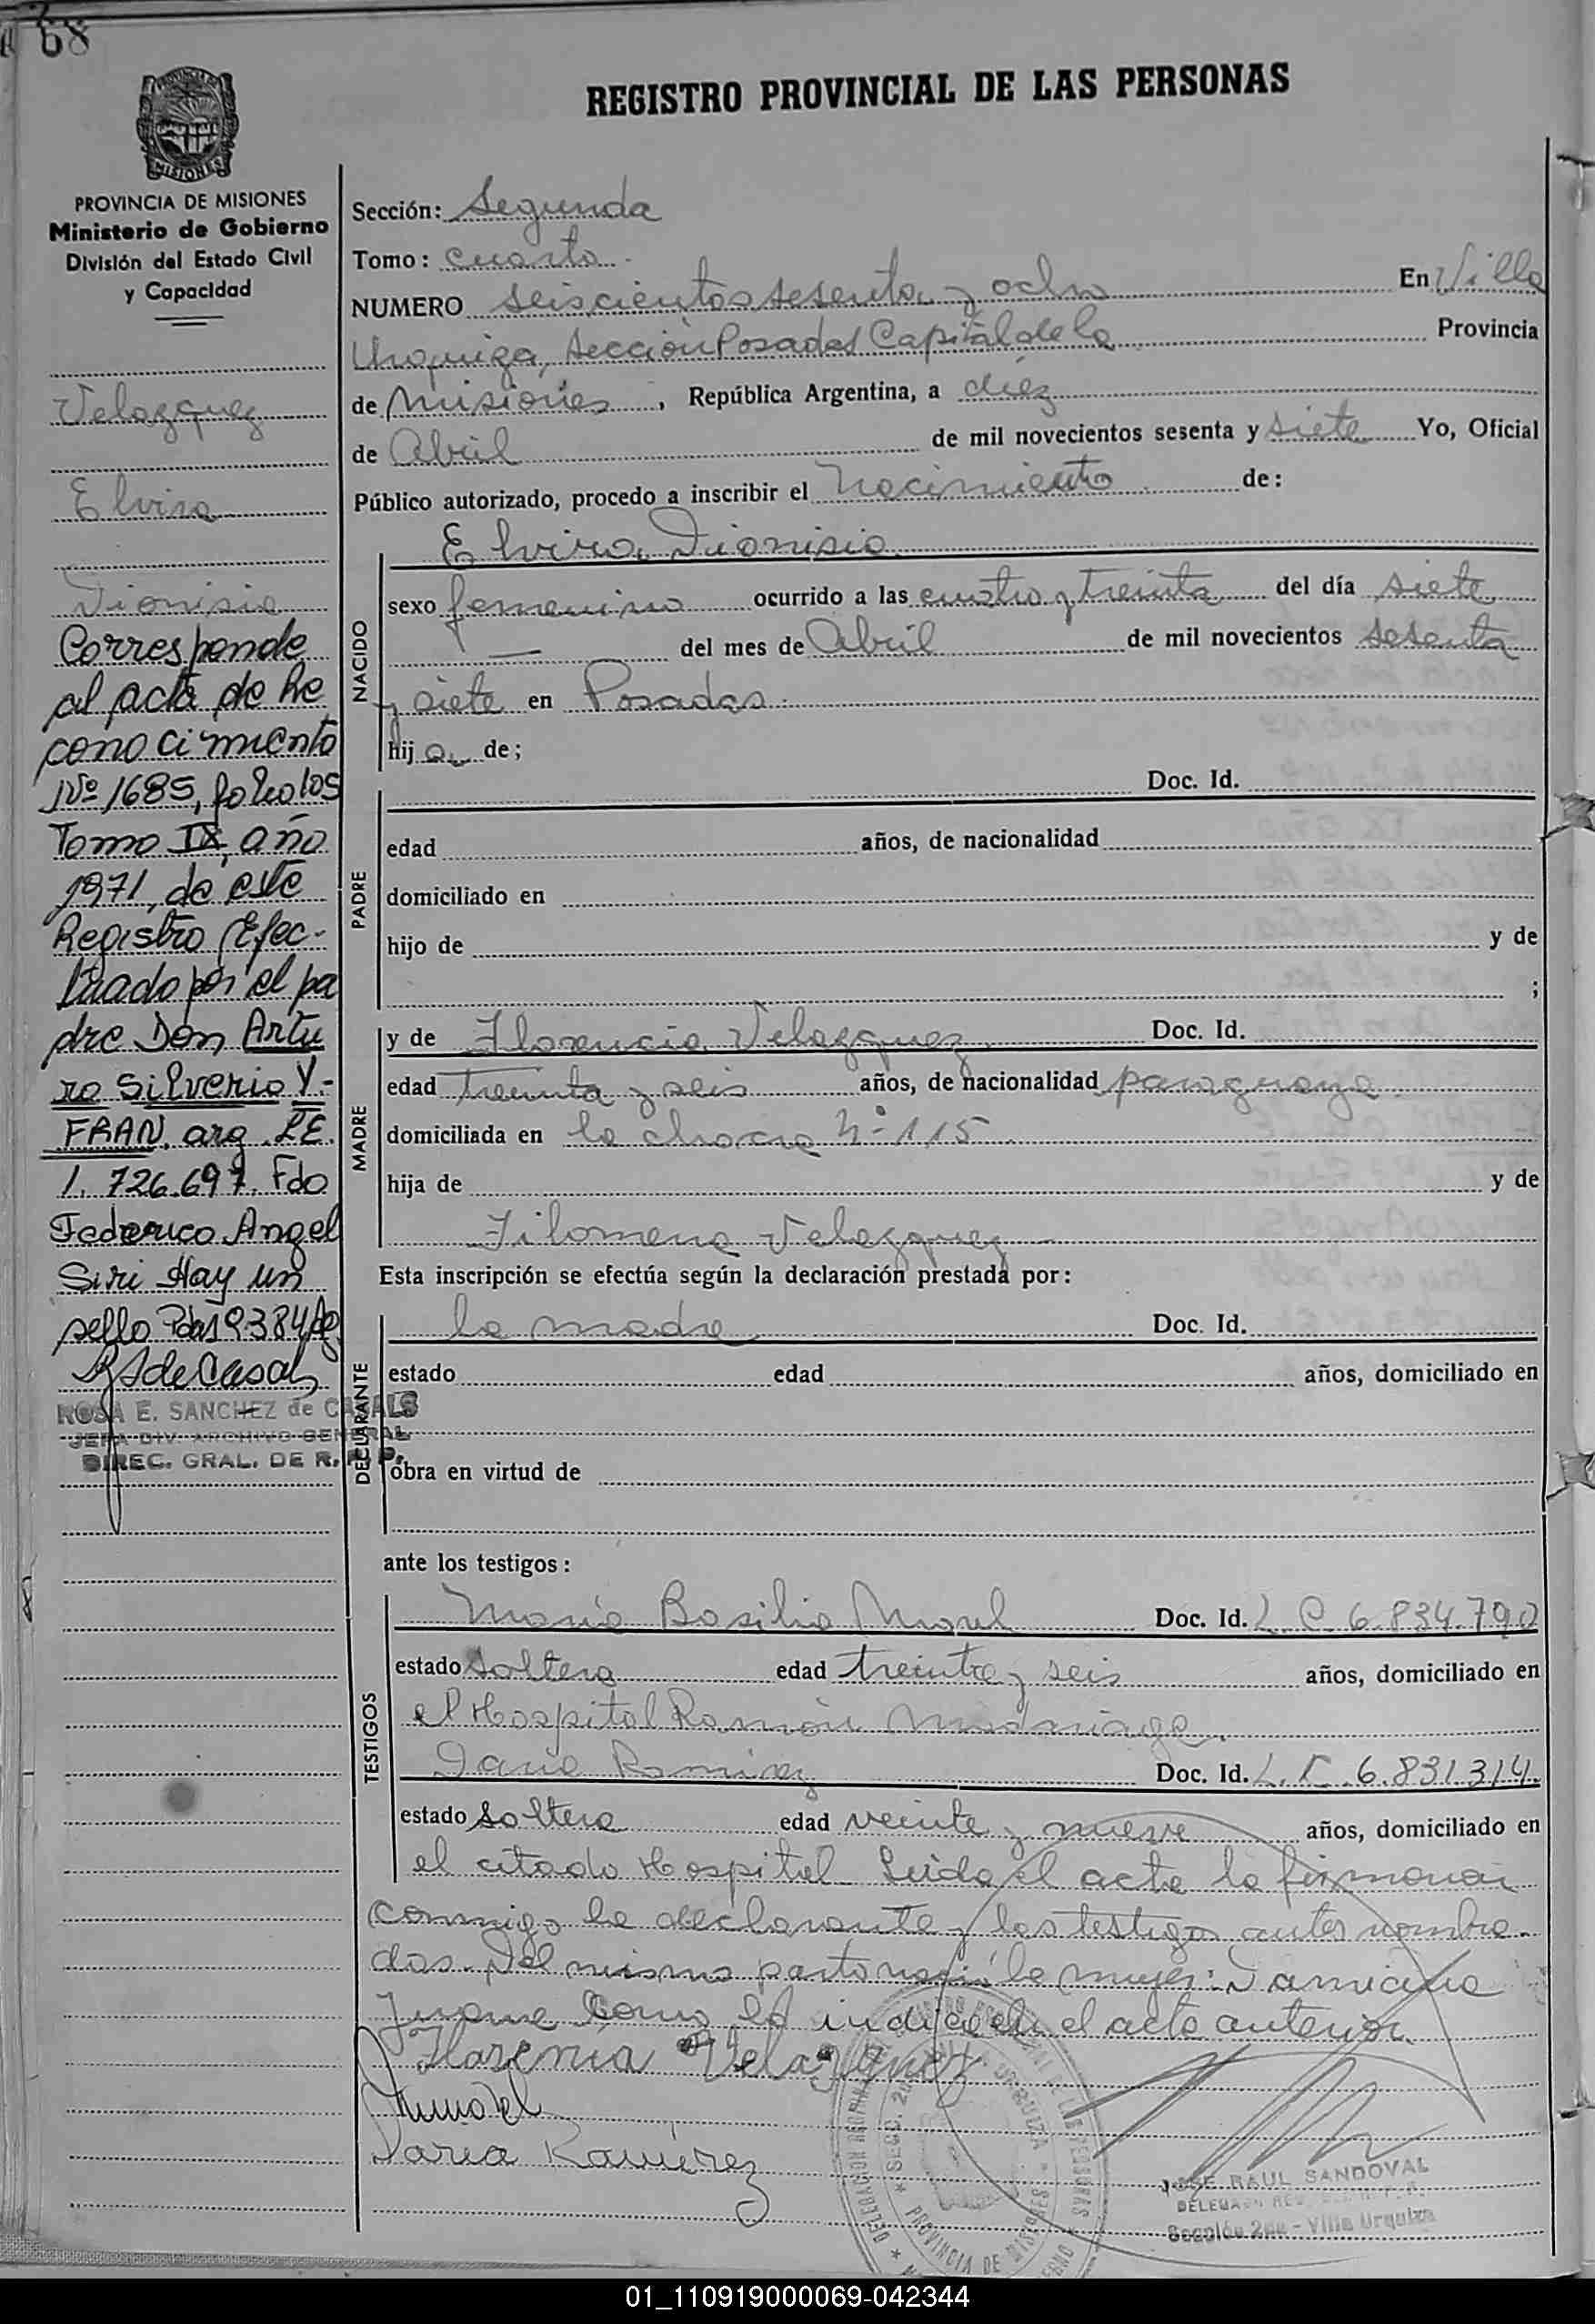 68
REGISTRO PROVINCIAL DE LAS PERSONAS
MISIONES
PROVINCIA DE MISIONES
Ministerio de Gobierno
División del Estado Civil
y Capacidad
Velazquez
Elvira
Dionisia
Corresponde
al acta de Re
conocimiento
Nº 1685, folio 105
Tomo IX, año
1971, de este
Registro Efec-
tuado por el pa
dre Don Artu
ro Silverio Y-
FRAN, arg. L.E.
1.726.697. Fdo
Federico Angel
Siri Hay un
sello Pdas
ROSA E. SANCHEZ de CASALS
JEFA DIV. ARCHIVO GENERAL
DIREC. GRAL. DE R. P. P.
Sección: Segunda
Tomo: cuarto
NUMERO seiscientos sesenta y ocho En Villa
Urquiza, Sección Posadas Capital de la Provincia
de Misiones, República Argentina, a diez
de Abril de mil novecientos sesenta y siete Yo, Oficial
Público autorizado, procedo a inscribir el Nacimiento de:
Elvira Dionisia
NACIDO
sexo femenino ocurrido a las cuatro y treinta del día siete
— del mes de Abril de mil novecientos sesenta
y siete en Posadas
hija de;
PADRE
Doc. Id.
edad años, de nacionalidad
domiciliado en
hijo de y de
;
MADRE
y de Florencia Velazquez Doc. Id.
edad treinta y seis años, de nacionalidad paraguaya
domiciliada en la chacra Nº 115
hija de y de
Filomena Velazquez
Esta inscripción se efectúa según la declaración prestada por:
DECLARANTE
la madre Doc. Id.
estado edad años, domiciliado en
obra en virtud de
ante los testigos:
TESTIGOS
María Basilia Morel Doc. Id. L. C. 6.834.790
estado soltera edad treinta y seis años, domiciliado en
el Hospital Ramón Madariaga
Daria Ramirez Doc. Id. L. C. 6.831.314.
estado soltera edad veinte y nueve años, domiciliado en
el citado Hospital Leida el acta la firman
conmigo la declarante y los testigos antes nombra-
das. Del mismo parto nació la mujer: Damiana
Juana como se indica en el acta anterior.
Florencia Velazquez
Daria Ramirez
JOSE RAUL SANDOVAL
Sección 2da - Villa Urquiza
PROVINCIA DE MISIONES
01_110919000069-042344